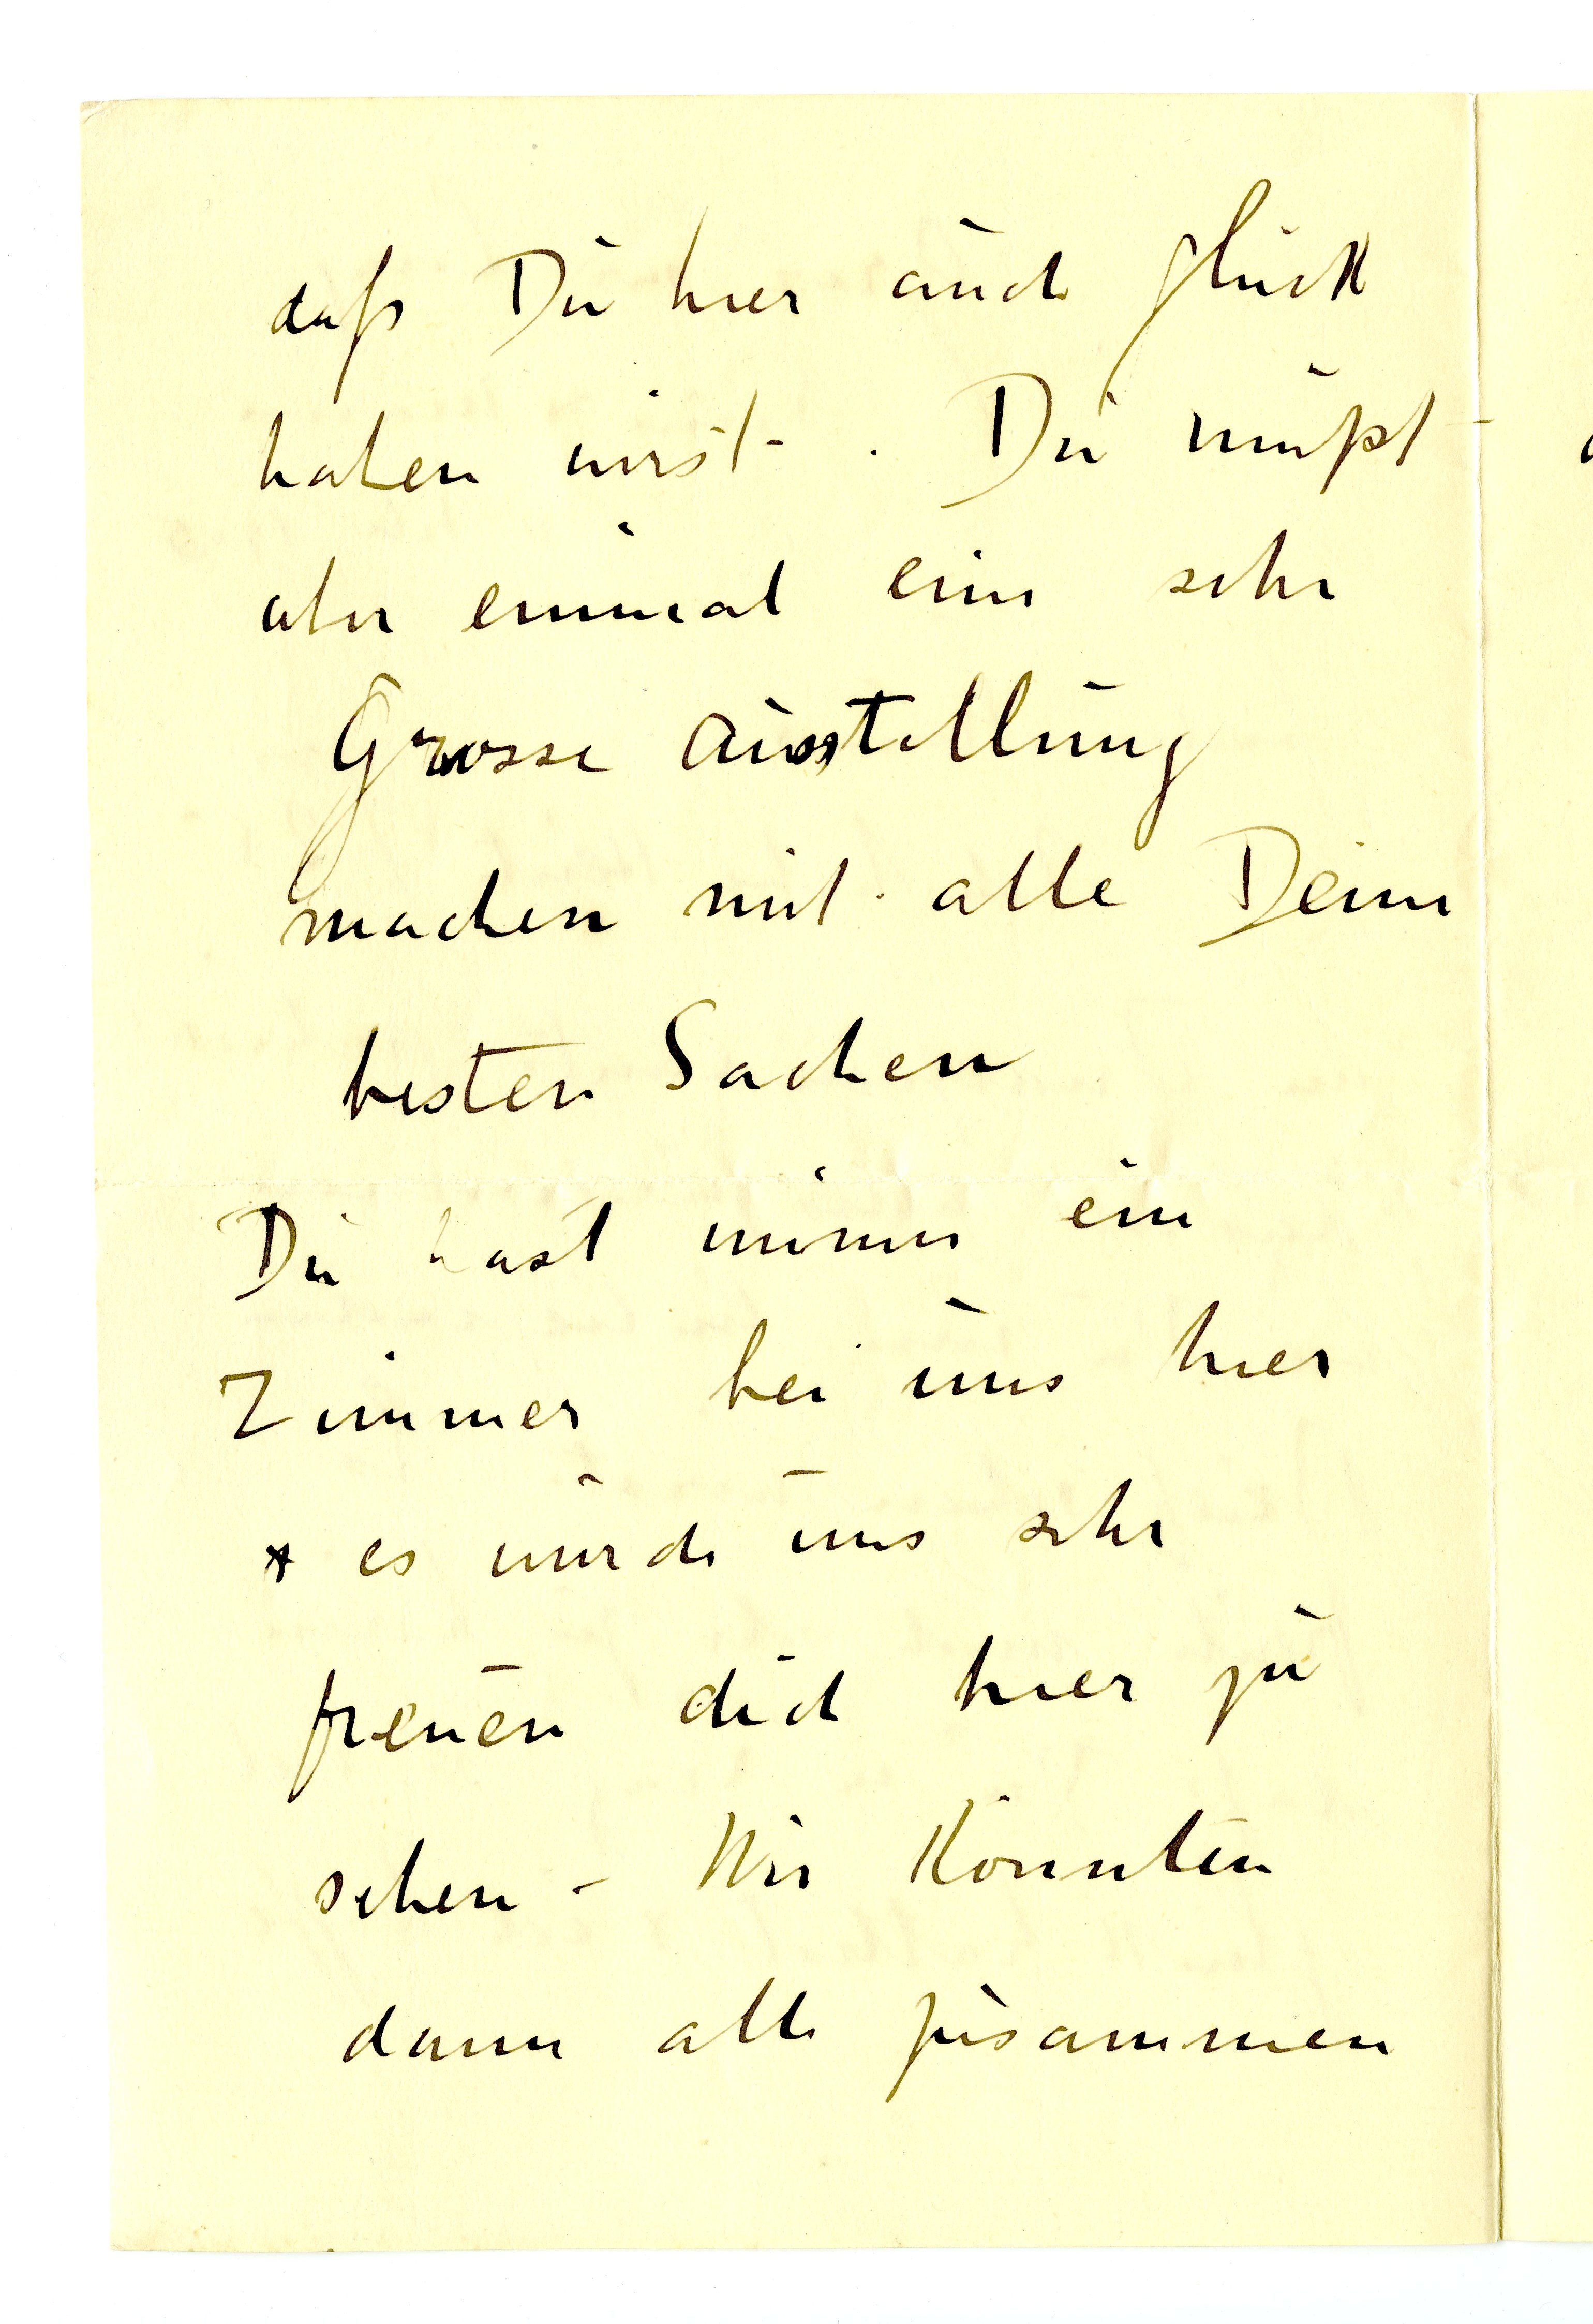 daß Du hier auch glück
haben wirst. Du müßt
aber einmal eine sehr
Grosse ausstellung
machen mit alle Deine
besten Sachen
Du hast immer ein
Zimmer bei uns hier
es würde uns sehr
freuen dich hier zu
sehen - Wir Könnten
dann alle zusammen